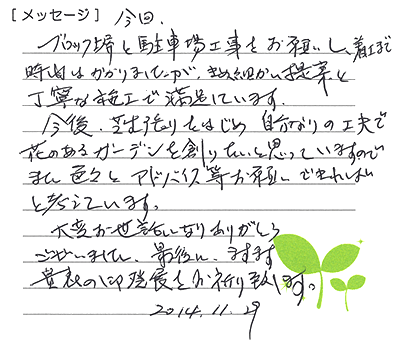 [メッセージ] 今回、
ブロック塀と駐車場工事をお願いし、着工まで
時間はかかりましたが、きめ細かい提案と
丁寧な施工で満足しています。
今後、芝張りをはじめ 自分なりの工夫で
花のあるガーデンを創りたいと思っていますので
また 色々と アドバイス等お願いできればと
と考えています。
大変お世話になりありがとう
ございました。最後に、ますます
貴社の御発展をお祈り致します。
2014.11.29